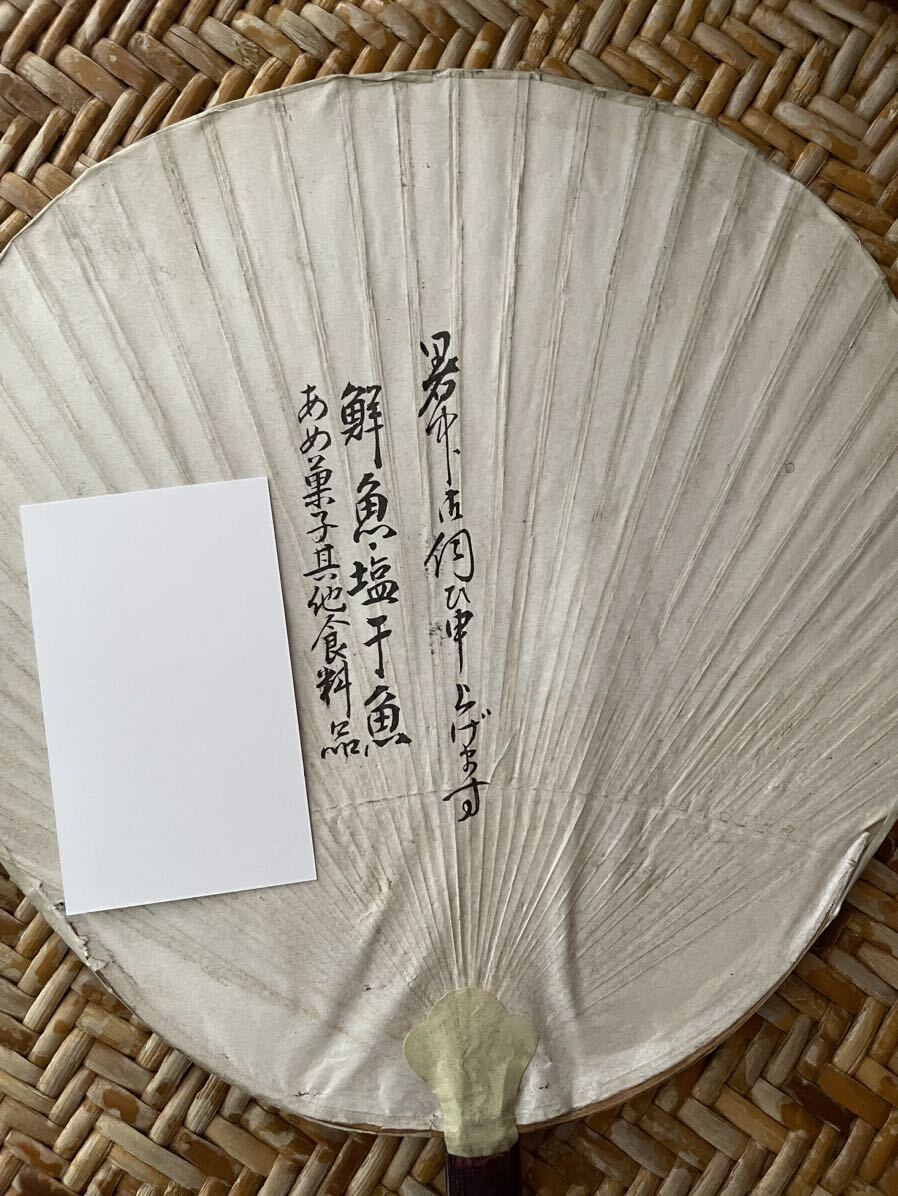 暑中御伺ひ申上げます
鮮魚・塩干魚
あめ菓子其他食料品